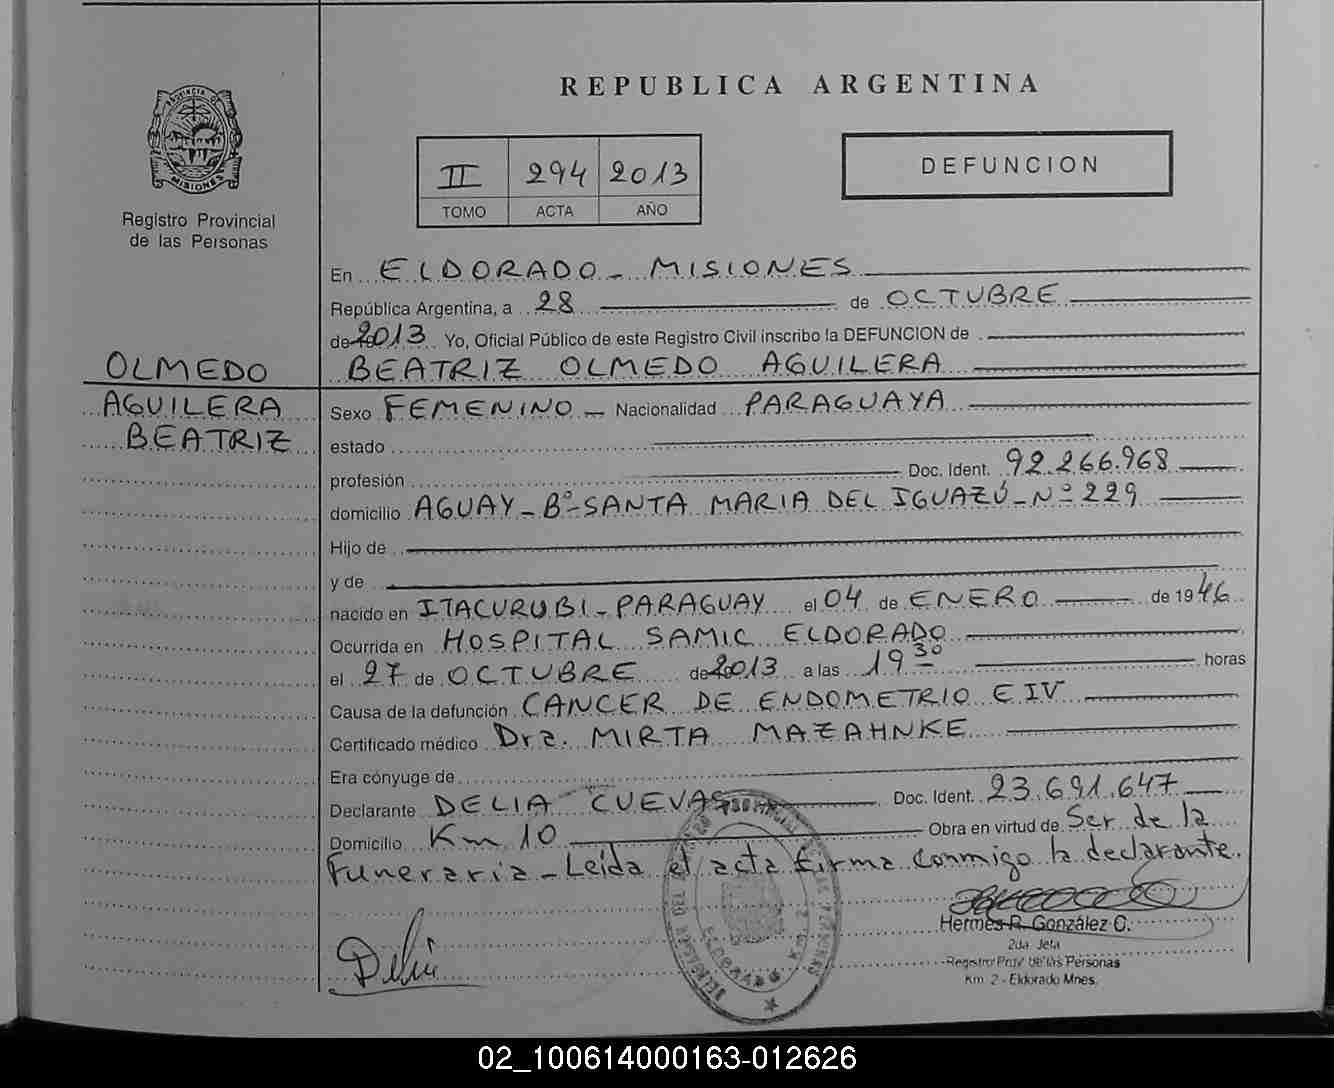 REPUBLICA ARGENTINA
PROVINCIA D
MISIONES
Registro Provincial
de las Personas
II 294 2013
TOMO ACTA AÑO
DEFUNCION
En ELDORADO - MISIONES
República Argentina, a 28 de OCTUBRE
de 2013 Yo, Oficial Público de este Registro Civil inscribo la DEFUNCION de
OLMEDO
AGUILERA
BEATRIZ
BEATRIZ OLMEDO AGUILERA
Sexo FEMENINO - Nacionalidad PARAGUAYA
estado
profesión Doc. Ident. 92.266.968
domicilio AGUAY - Bº - SANTA MARIA DEL IGUAZÚ - Nº 229
Hijo de
y de
nacido en ITACURUBI - PARAGUAY el 04 de ENERO de 1946
Ocurrida en HOSPITAL SAMIC ELDORADO
el 27 de OCTUBRE de 2013 a las 19 30 horas
Causa de la defunción CANCER DE ENDOMETRIO E IV
Certificado médico Dra. MIRTA MAZAHNKE
Era cónyuge de
Declarante DELIA CUEVAS Doc. Ident. 23.691.647
Domicilio Km 10 Obra en virtud de Ser de la
Funeraria - Leída el acta firma conmigo la declarante.
Delia
Hermes R. González O.
2da. Jefa
Registro Prov. de las Personas
Km. 2 - Eldorado Mnes.
02_100614000163-012626